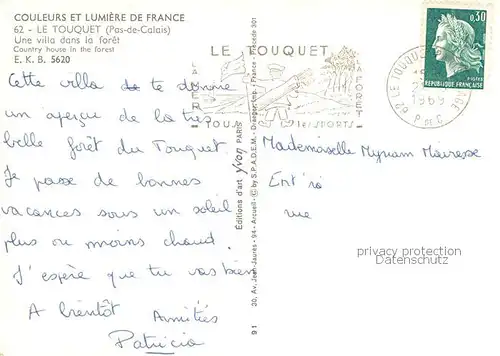 COULEURS ET LUMIÈRE DE FRANCE
62 - LE TOUQUET (Pas-de-Calais)
Une villa dans la forêt
Country house in the forest
E. K. B. 5620
Cette villa te donne
un aperçu de la très
belle forêt du Touquet.
Je passe de bonnes
vacances sous un soleil
plus ou moins chaud.
J'espère que tu vas bien
A bientôt Amitiés
Patricia
Editions d'art yvon PARIS
30, Av. Jean-Jaurès - 94 - Arcueil - © by S.P.A.D.E.M. - Draeger imp. - France - Procédé 301
91
LE TOUQUET
LA MER
LA FORET
TOUS LES SPORTS
62 LE TOUQUET
1969
P. DE C.
0,30
REPUBLIQUE FRANÇAISE
Mademoiselle Myriam Mairesse
Ent' ré
rue
privacy protection
Datenschutz